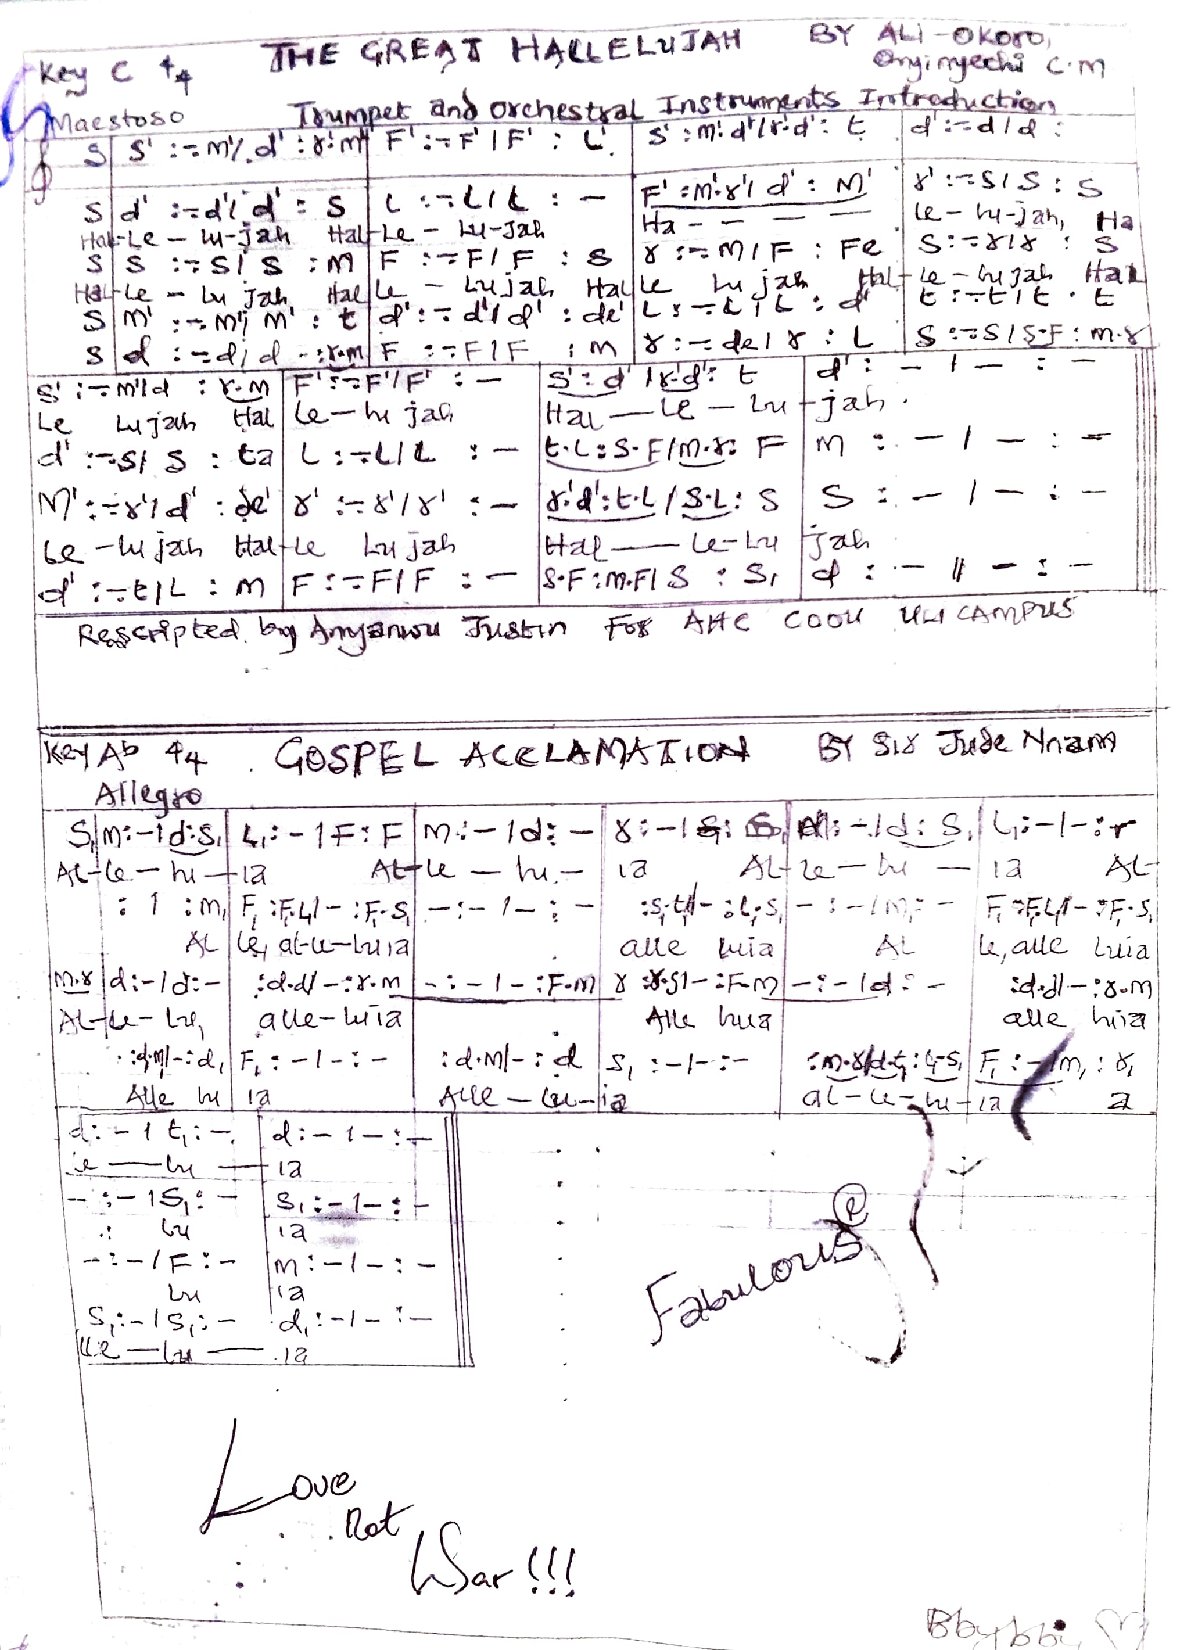 THE GREAT HALLELUJAH BY ALI-OKORO,
Key C 4/4 Onyinyechi C.M
Maestoso Trumpet and Orchestral Instruments Introduction
S | S' :-.m'/ d' : r'.m' | F' :-.F' / F' : L' | S' : m'.d' / r'.d' : t | d' :-.d / d :
S | d' :-.d' / d' : S | L :-.L / L : — | F' : m'.r' / d' : M' | r' :-.S / S : S
Hal-Le - lu-jah Hal-Le - Lu-Jah Ha - - - - Le-lu-jah, Ha
S | S :-.S / S : M | F :-.F / F : S | r :-.M / F : Fe | S :-.r / r : S
Hal-Le - Lu jah Hal Le - Lu jah Hal Le Lu jah Hal-Le-Lu jah Hal
S | M' :-.M' / M' : t | d' :-.d' / d' : de' | L :-.L / L : d' | t :-.t / t . t
S | d :-.d / d -:r.m | F :-.F / F : m | r :-.de / r : L | S :-.S / S.F : m.r
S' :-.m' / d : r.m | F' :-.F' / F' : — | S' : d' / r'.d' : t | d' : - / - : -
Le Lu jah Hal Le-lu jah Hal — Le - Lu - jah.
d' :-.S / S : ta | L :-.L / L : — | t.L : S.F / m.r : F | m : - / - : -
M' :-.r' / d' : de' | r' :-.r' / r' : — | r'.d' : t.L / S.L : S | S : - / - : -
Le -lu jah Hal-Le Lu jah Hal — Le-Lu jah
d' :-.t / L : m | F :-.F / F : — | S.F : m.F / S : S, | d : - // - : -
Rescripted by Anyanwu Justin For AHC COOU ULI CAMPUS
Key Ab 4/4 GOSPEL ACCLAMATION BY Sir Jude Nnam
Allegro
S, | m :-1 d : S, | L, :-1 F : F | m :-1 d : - | r :-1 S, : S, | m :-1 d : S, | L, :-1-: r
AL-Le - lu - ia AL-Le - lu - ia AL-Le - lu - ia AL-
: 1 : m, | F, :F,.L,/- :F,.S, | - : - 1 - : - | :S,.t,/- :L,.S, | - : - / M, : - | F, :F,.L,/- :F,.S,
AL Le, al-le-luia alle luia AL le, alle luia
m.r | d :-/d :- | :d.d/- :r.m | - : - 1 - :F.m | r :r.S/- :F.m | - : - / d : - | :d.d/- :r.m
AL-Le-lu, alle-luia Alle luia alle luia
:d.m/- :d, | F, :-1- :- | :d.M/- : d | S, :-1- :- | :m.r/d.t, :L,.S, | F, :-/m, : r,
Alle lu ia Alle - lu-ia al-le-lu-ia a
d :-1 t, :- | d :-1- :-
le — lu — ia
- : - 1 S, : - | S, :-1- :-
lu ia
- : - / F : - | m :-/- : -
lu ia
S, :-/ S, :- | d, :-/- :-
lle — lu — ia
Fabulous ®
Love
Not
War!!!